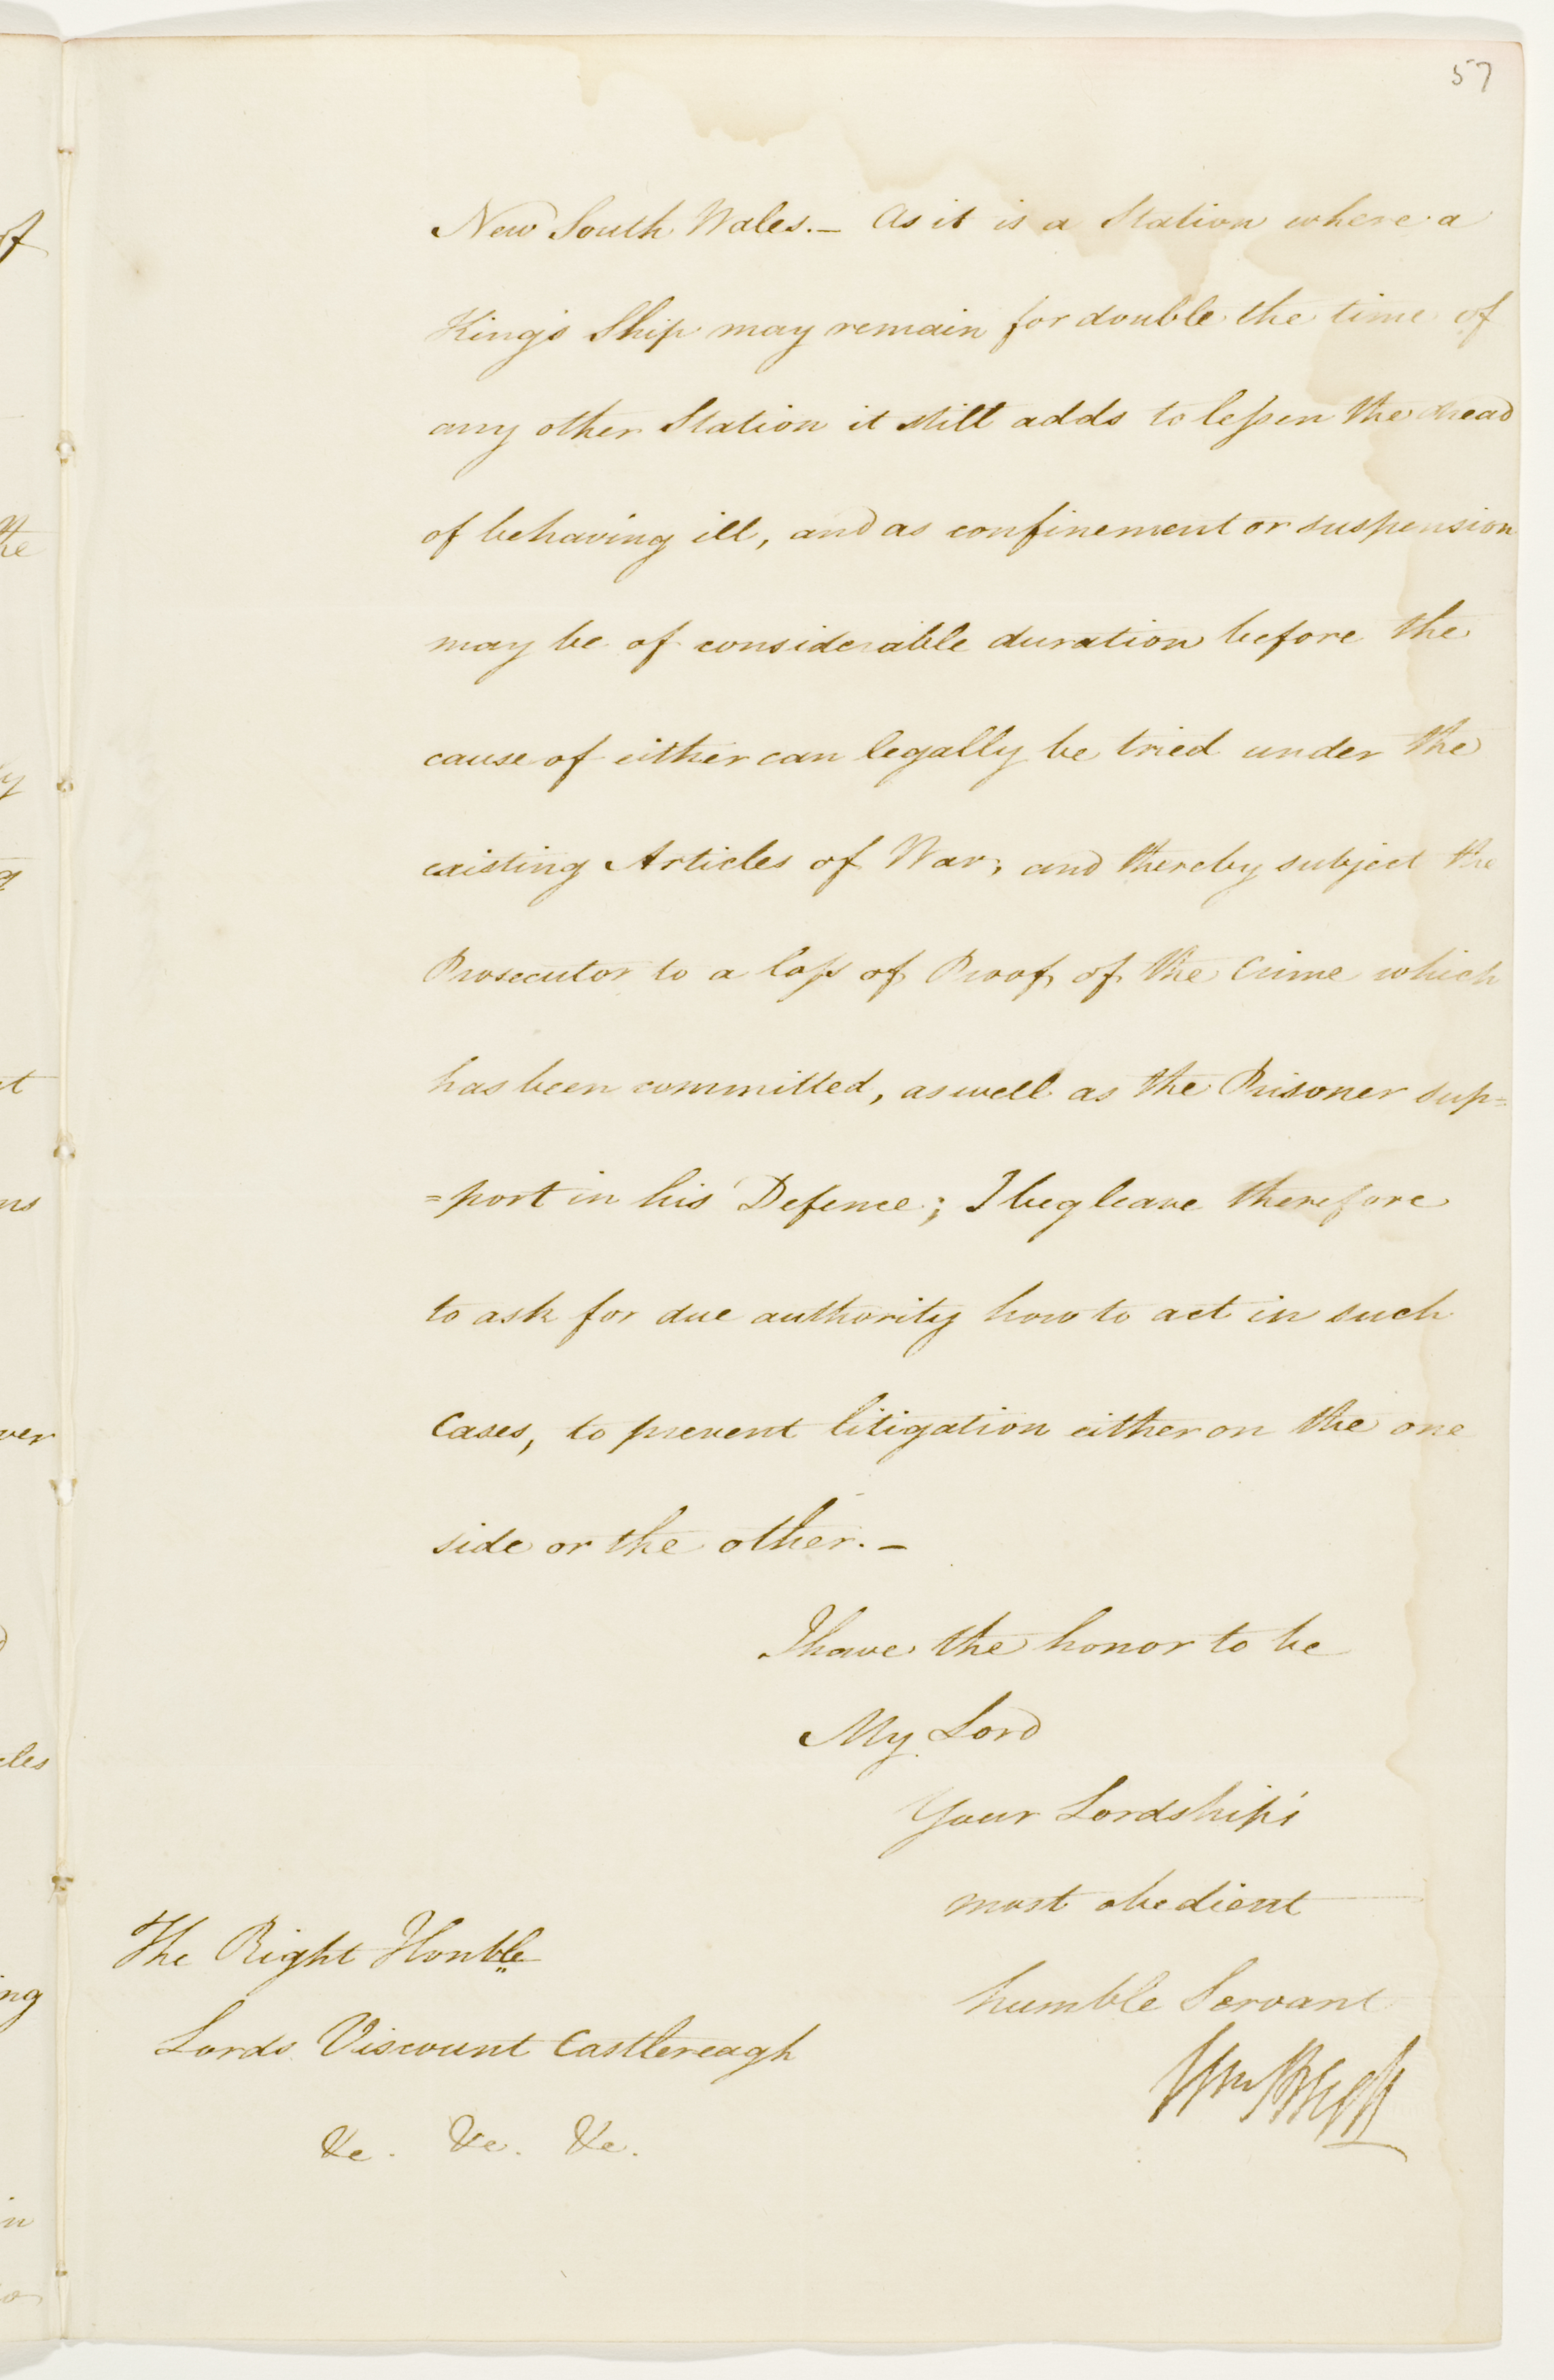 57
New South Wales. — As it is a Station where a
King's Ship may remain for double the time of
any other Station it still adds to lessen the dread
of behaving ill, and as confinement or suspension
may be of considerable duration before the
cause of either can legally be tried under the
existing Articles of War, and thereby subject the
Prosecutor to a loss of Proof of the Crime which
has been committed, as well as the Prisoner sup=
=port in his Defence; I beg leave therefore
to ask for due authority how to act in such
Cases, to prevent litigation either on the one
side or the other. —
I have the honor to be
My Lord
Your Lordship's
most obedient
humble Servant
Wm Bligh
The Right Honble
Lords Viscount Castlereagh
&c. &c. &c.
of
the
y
g
t
ns
ver
cles
ng
in